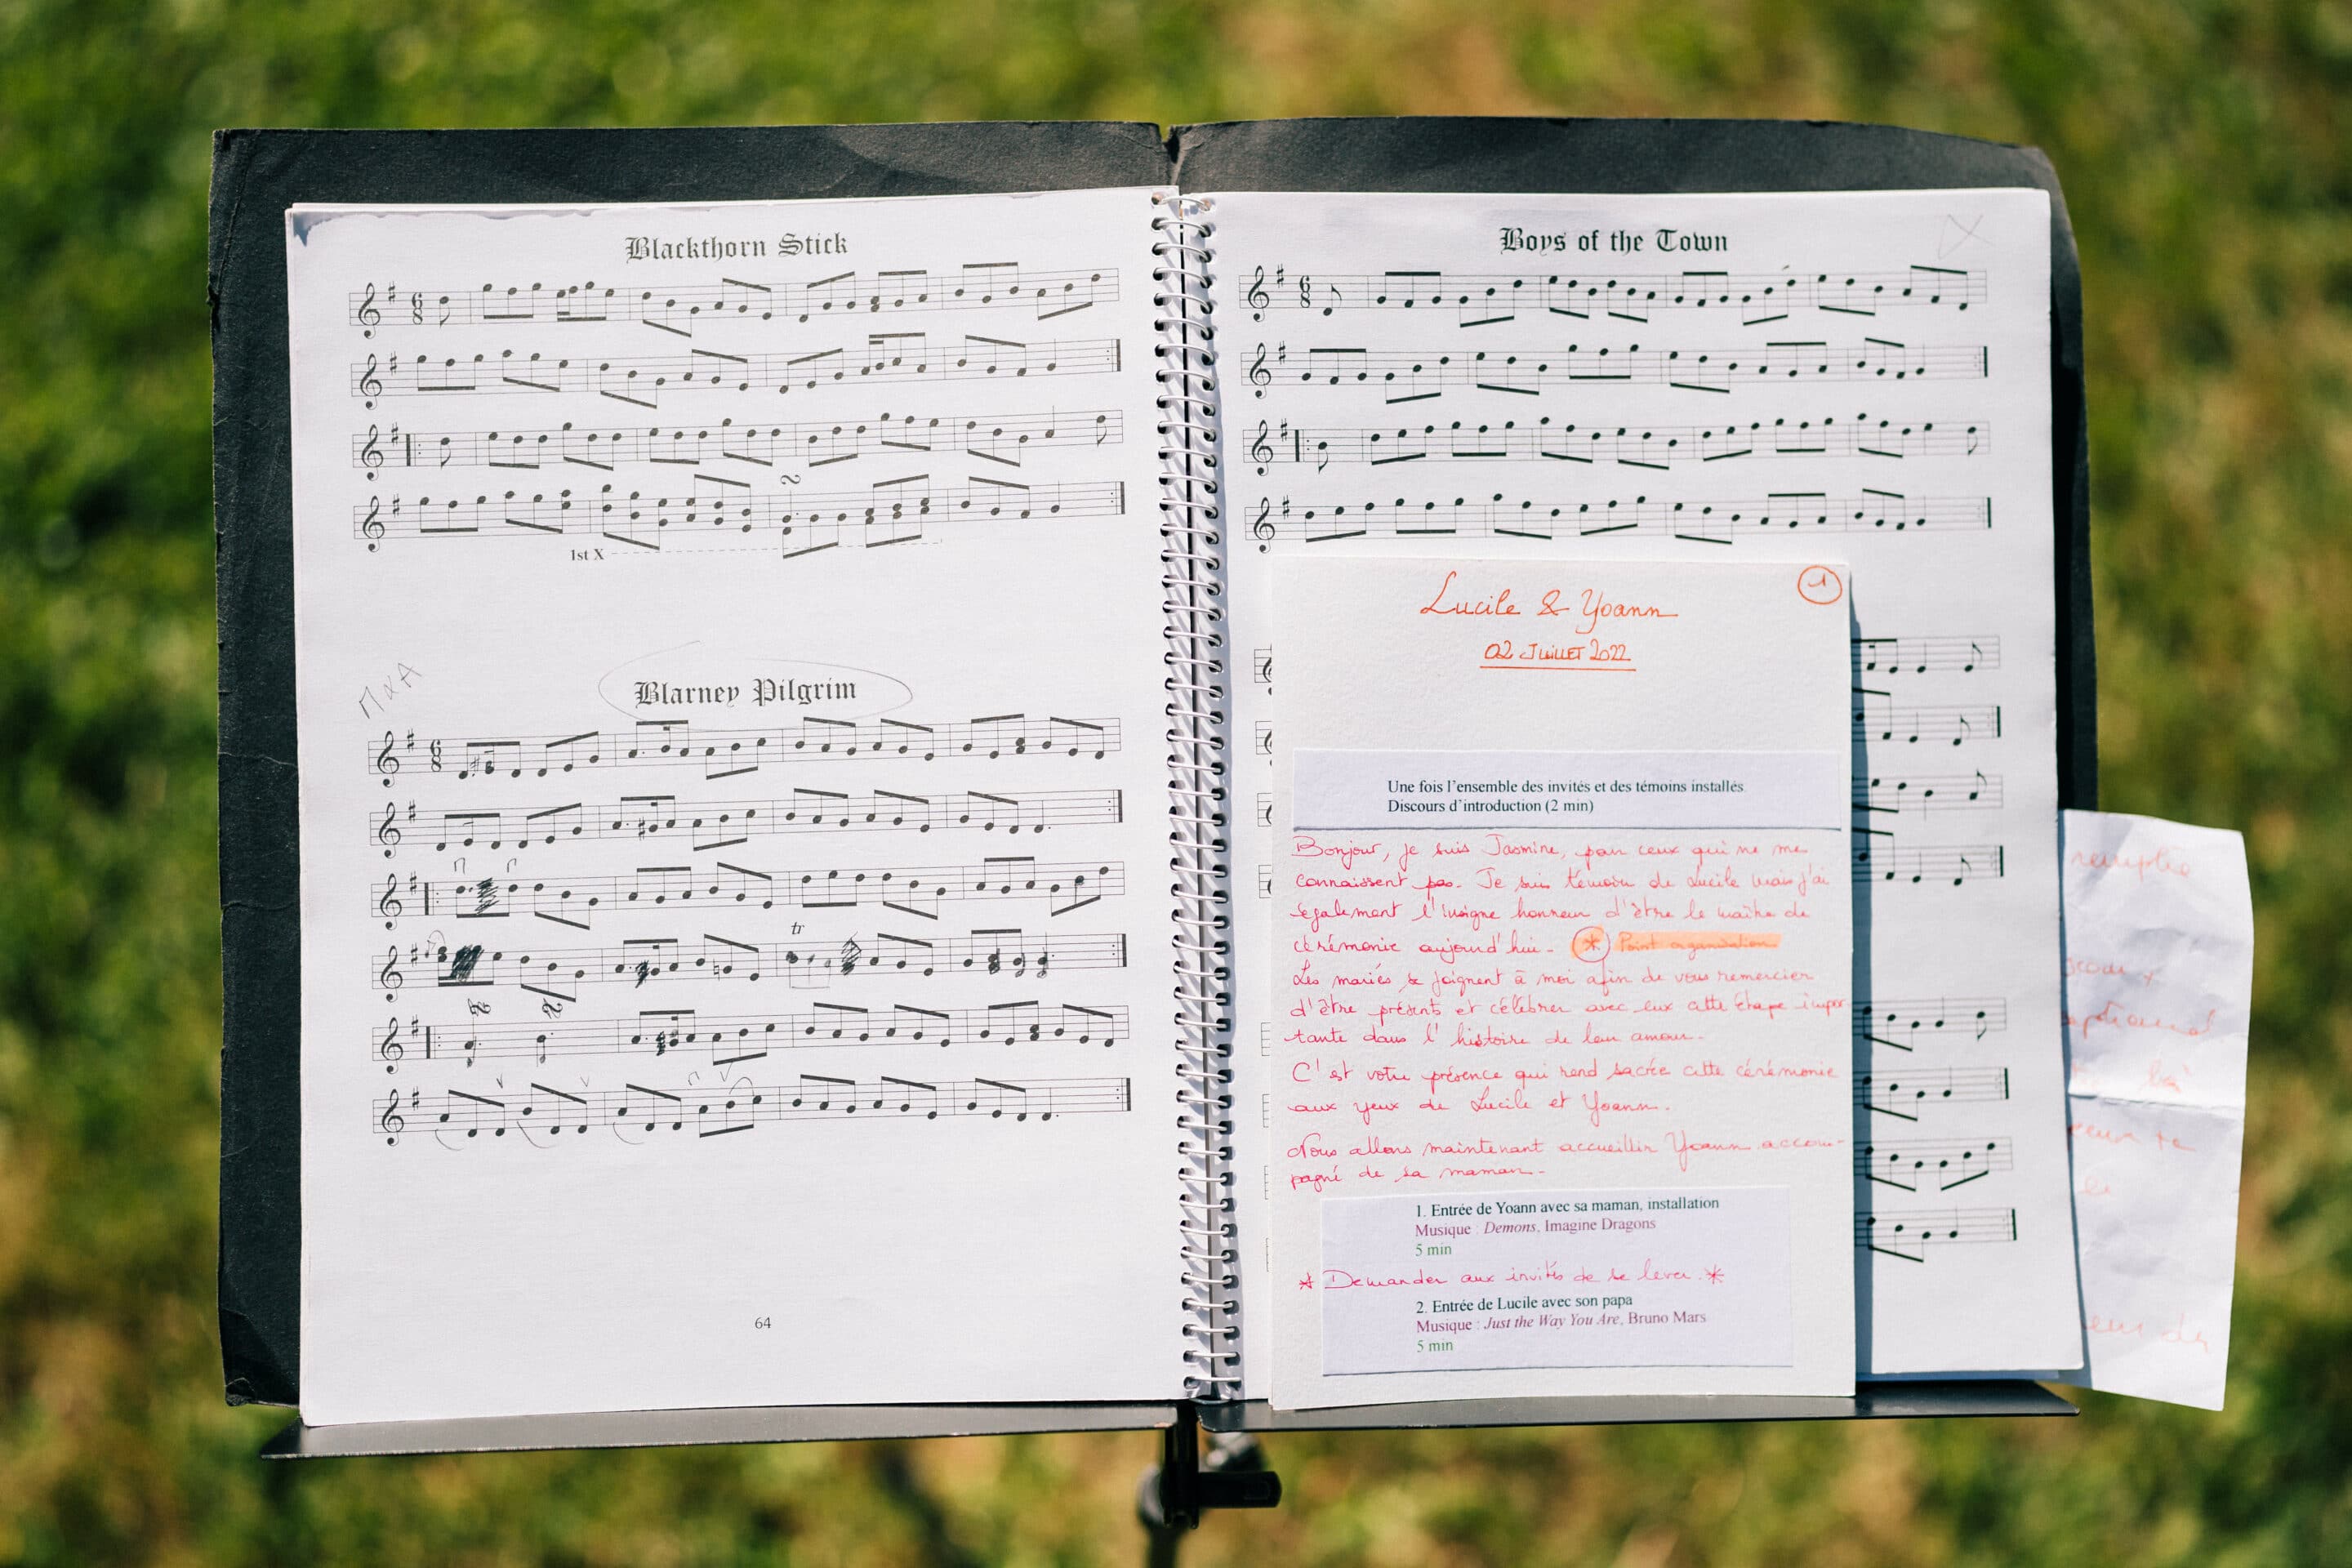 Blackthorn Stick
6
8
1st X
Blarney Pilgrim
6
8
tr
64
Boys of the Town
6
8
1
Lucile & Yoann
02 JUILLET 2022
Une fois l'ensemble des invités et des témoins installés.
Discours d'introduction (2 min)
Bonjour, je suis Jasmine, pour ceux qui ne me
connaissent pas. Je suis témoin de Lucile mais j'ai
également l'insigne honneur d'être le maître de
cérémonie aujourd'hui. * Point organisation
Les mariés se joignent à moi afin de vous remercier
d'être présents et célébrer avec eux cette étape impor
tante dans l'histoire de leur amour.
C'est votre présence qui rend sacrée cette cérémonie
aux yeux de Lucile et Yoann.
Nous allons maintenant accueillir Yoann accom-
pagné de sa maman.
1. Entrée de Yoann avec sa maman, installation
Musique : Demons, Imagine Dragons
5 min
* Demander aux invités de se lever. *
2. Entrée de Lucile avec son papa
Musique : Just the Way You Are, Bruno Mars
5 min